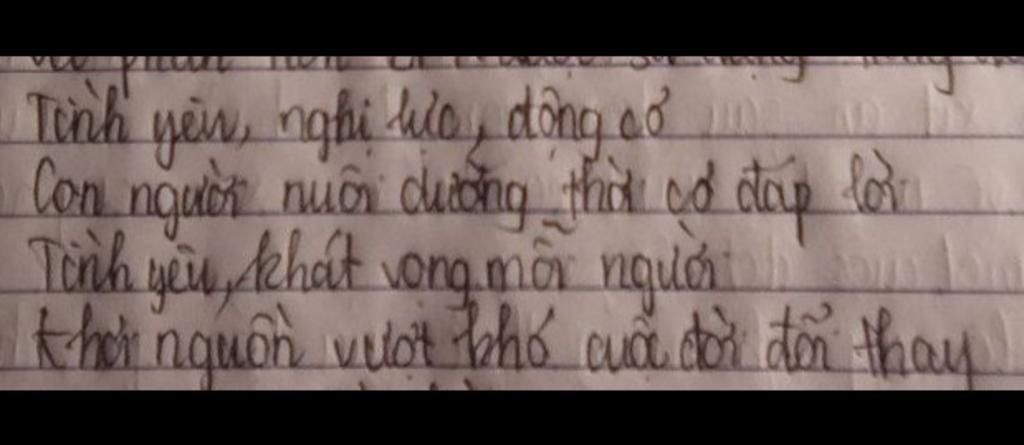 Tình yêu, nghị lực, động cơ
Con người nuôi dưỡng thời cơ đáp lời
Tình yêu, khát vọng mỗi người
Khơi nguồn vượt khó cuộc đời đổi thay